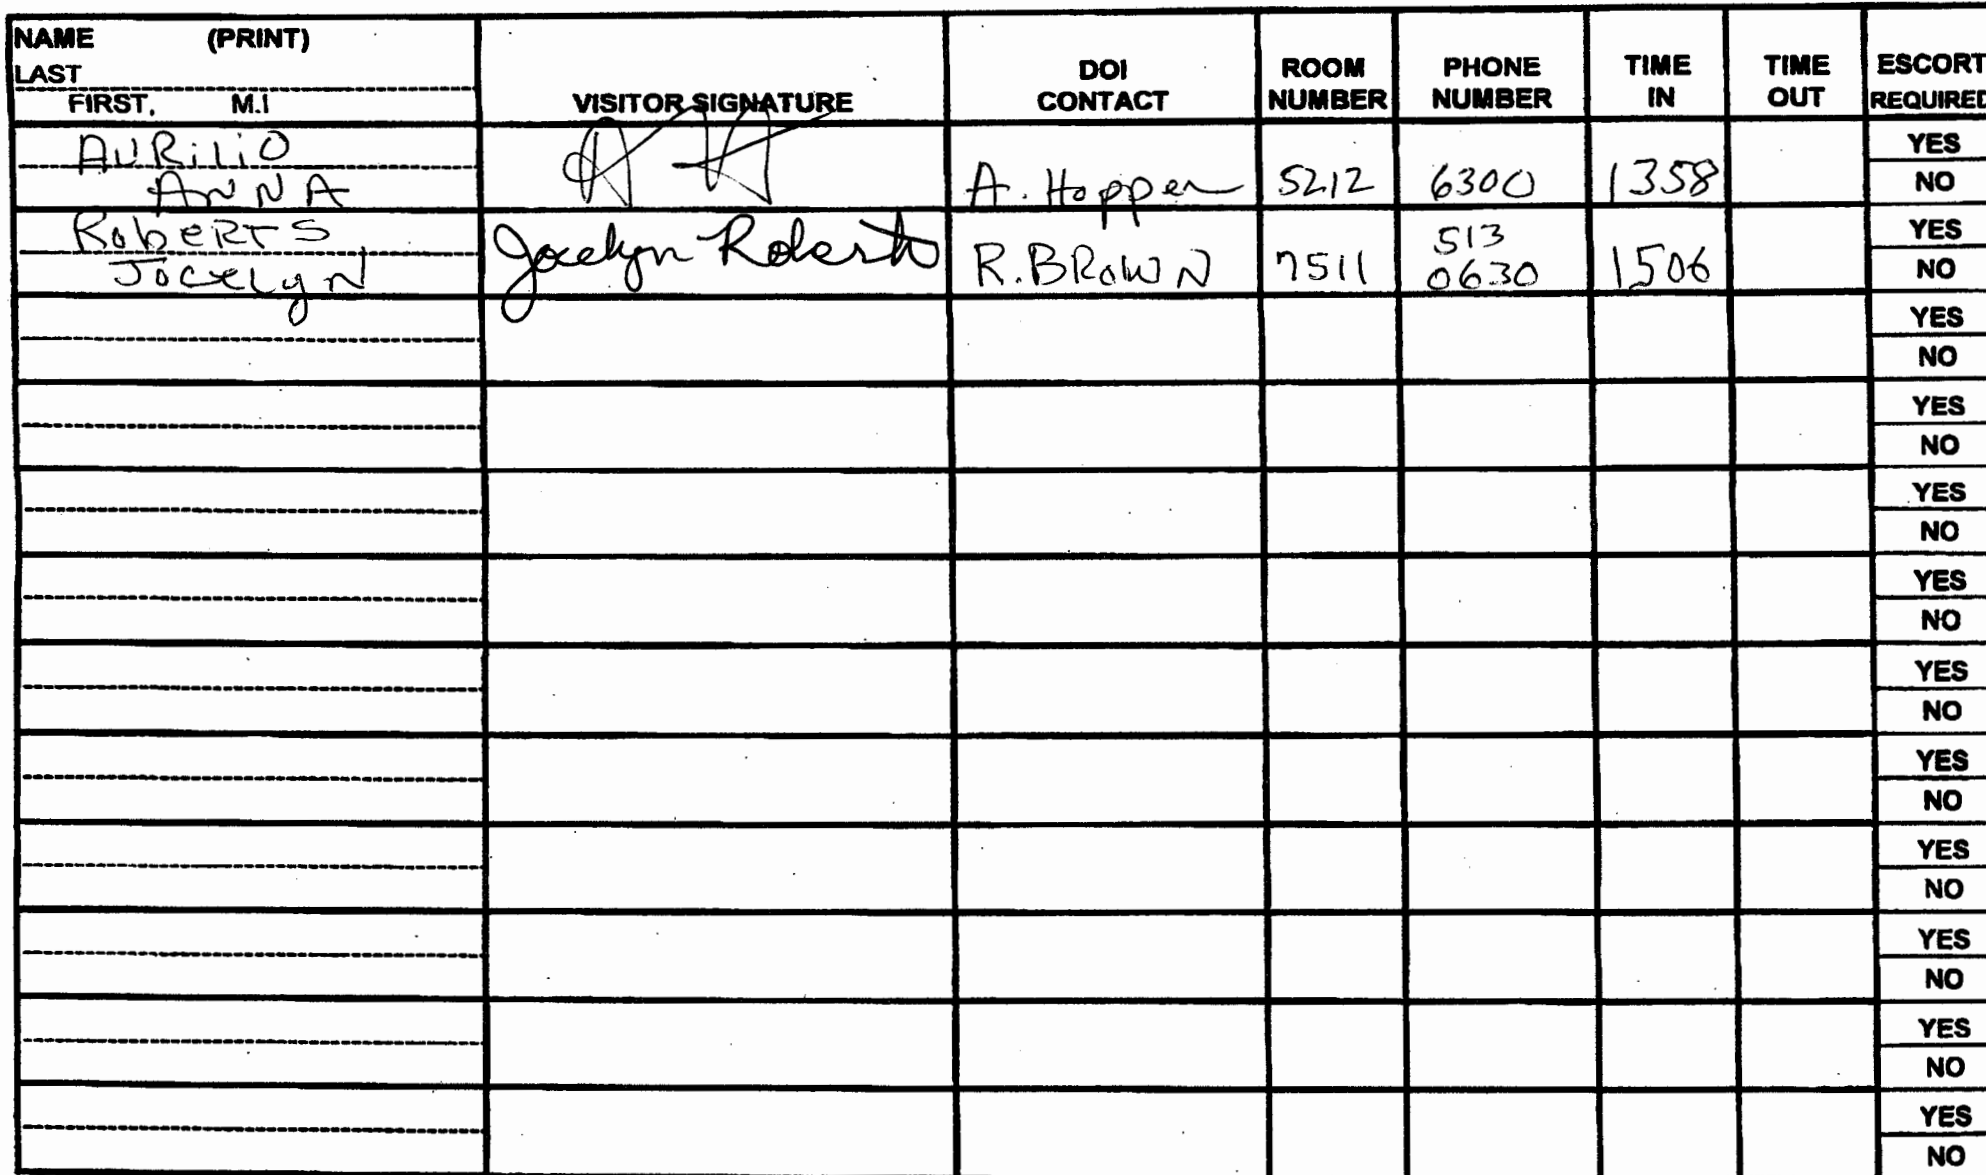 NAME (PRINT)
LAST
FIRST, M.I
VISITOR SIGNATURE
DOI
CONTACT
ROOM
NUMBER
PHONE
NUMBER
TIME
IN
TIME
OUT
ESCORT
REQUIRED
AURiLiO
ANNA
A. Hopper
5212
6300
1358
YES
NO
RobERTS
JoceLyN
Jocelyn Roberts
R. BROWN
7511
513
0630
1506
YES
NO
YES
NO
YES
NO
YES
NO
YES
NO
YES
NO
YES
NO
YES
NO
YES
NO
YES
NO
YES
NO